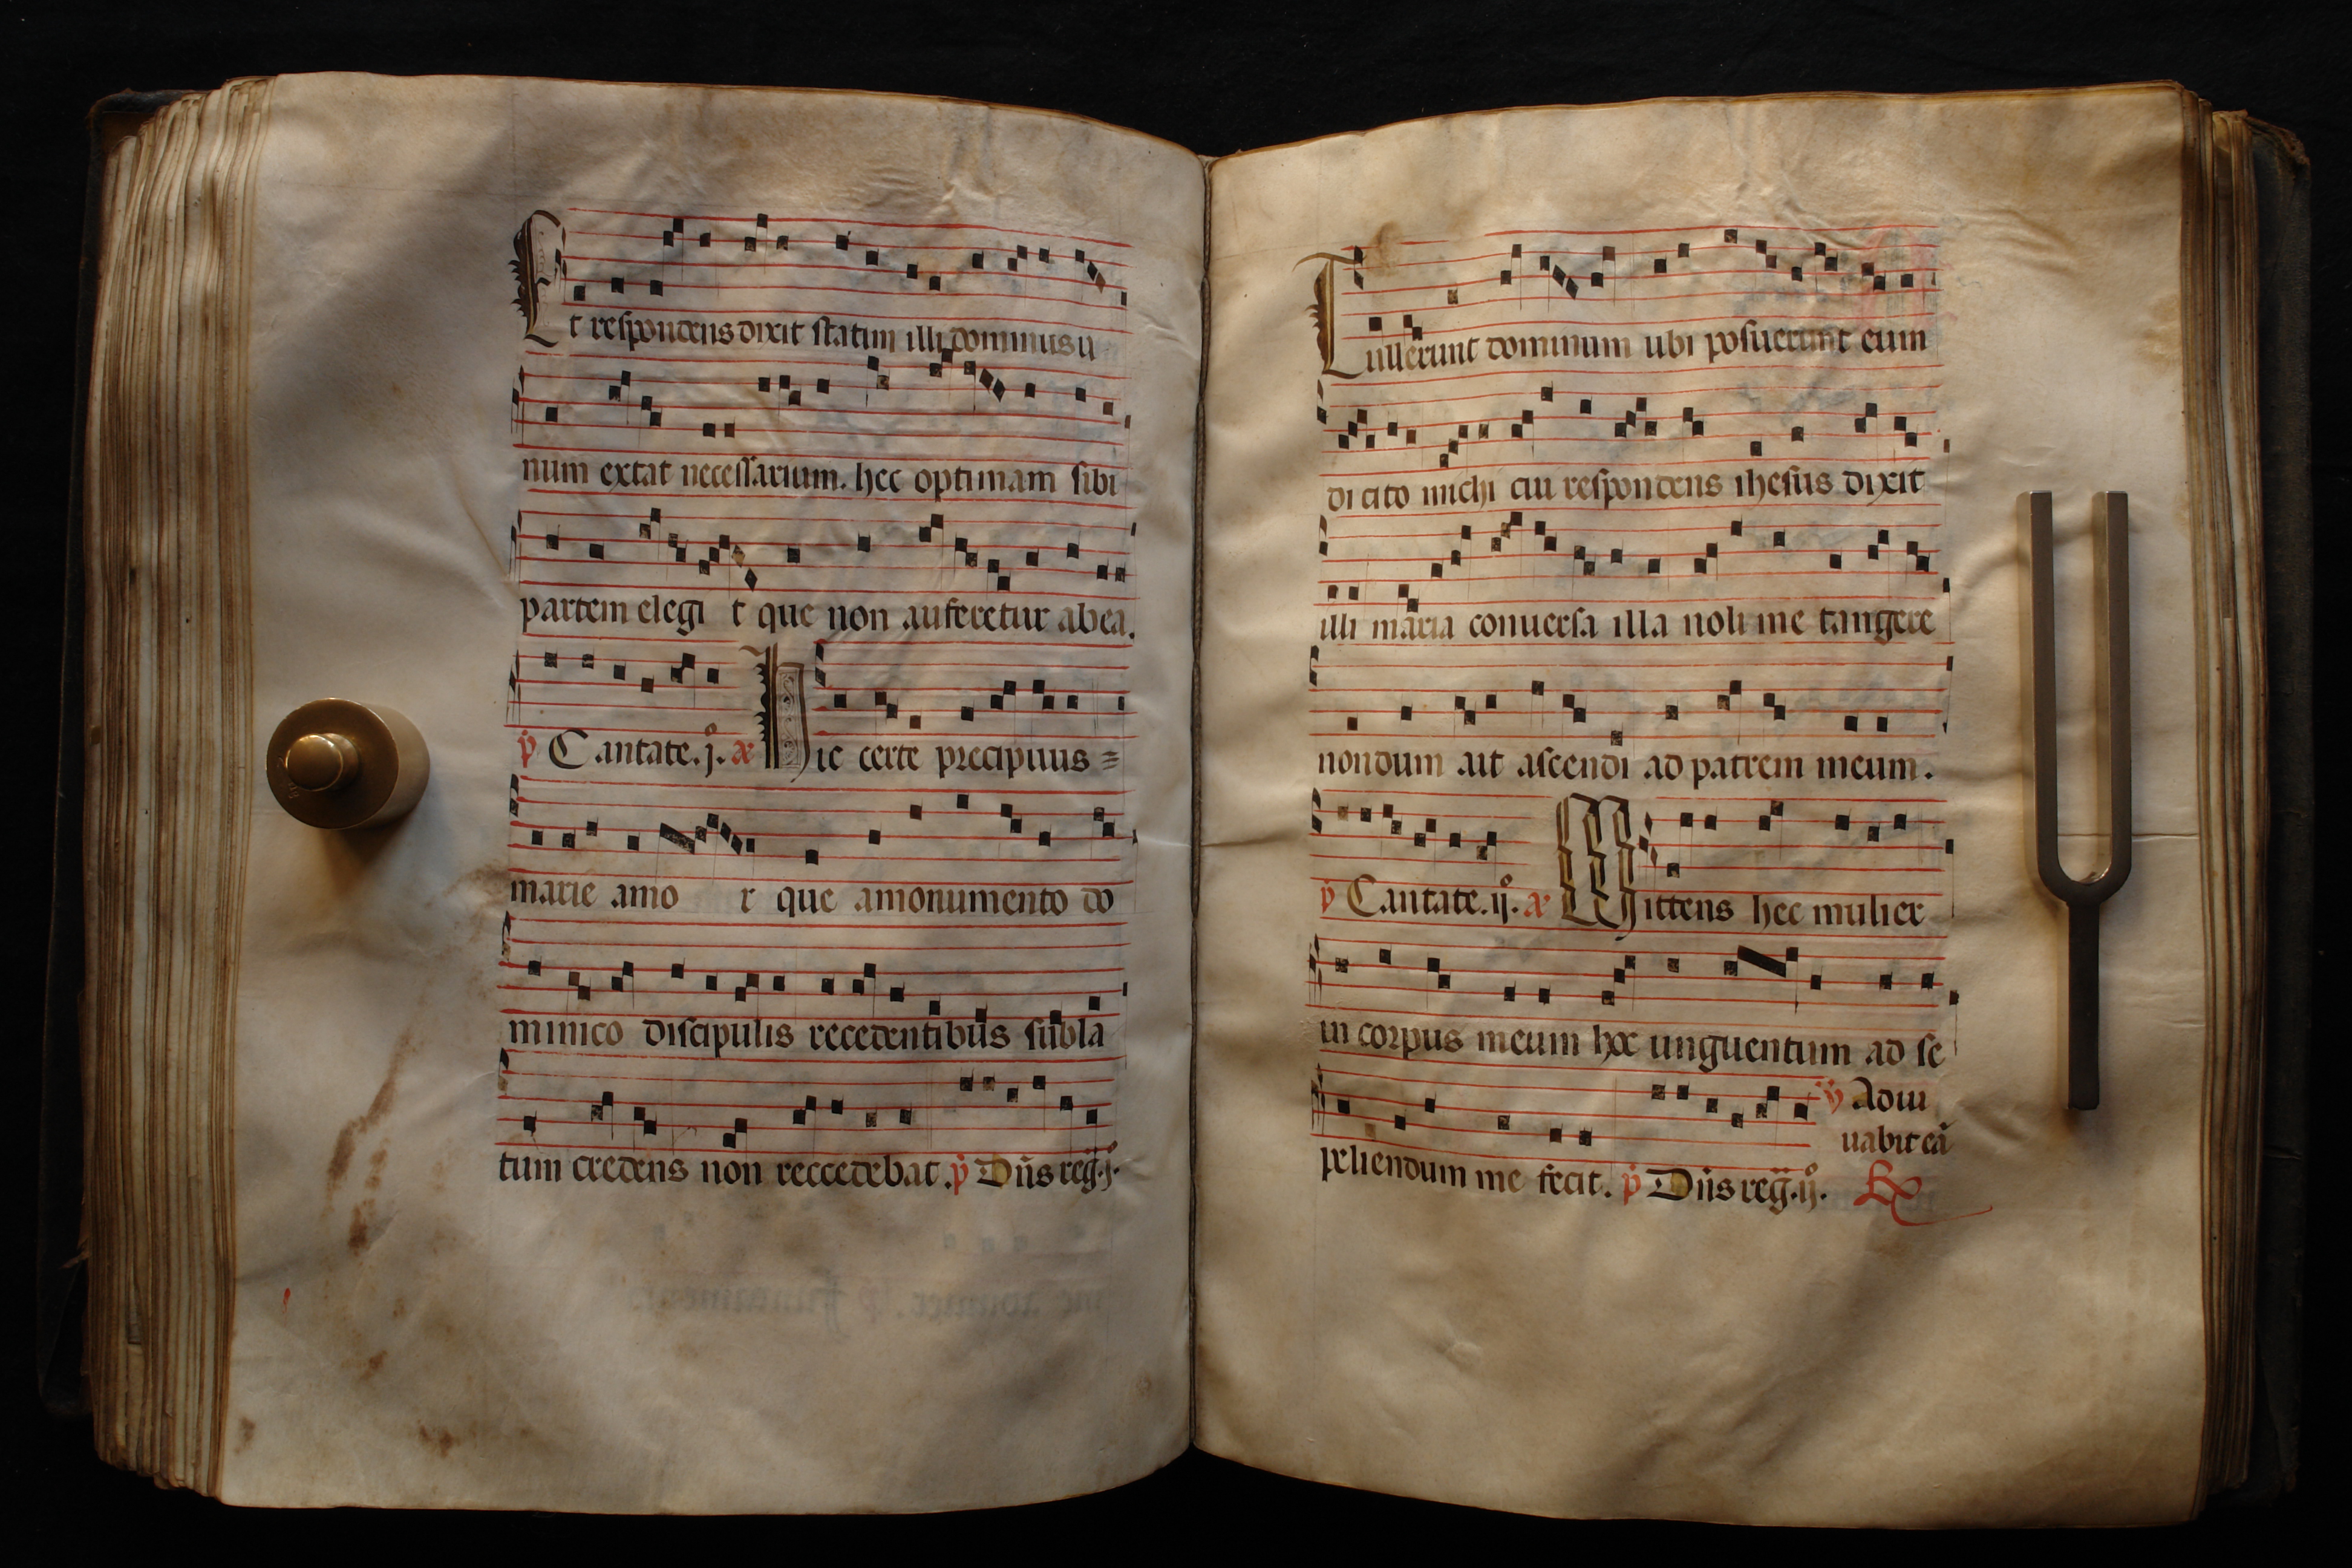 Et respondens dixit statim illi dominus u
num extat necessarium. hec optimam sibi
partem elegi t que non auferetur abea.
p̄ Cantate.j. a Hic certe precipuus =
marie amo r que amonumento do
minico discipulis recedentibus subla
tum credens non reccedebat. p̄ Dn̄s reḡ.j.
Tullerunt dominum ubi posuerunt eum
dicito michi cui respondens ihesus dixit
illi maria conuersa illa noli me tangere
nondum ait ascendi ad patrem meum.
p̄ Cantate.ij. a Mittens hec mulier
in corpus meum hoc unguentum ad se
v̄ Adiu
uabit eā
peliendum me fecit. p̄ Dn̄s reḡ.ij.